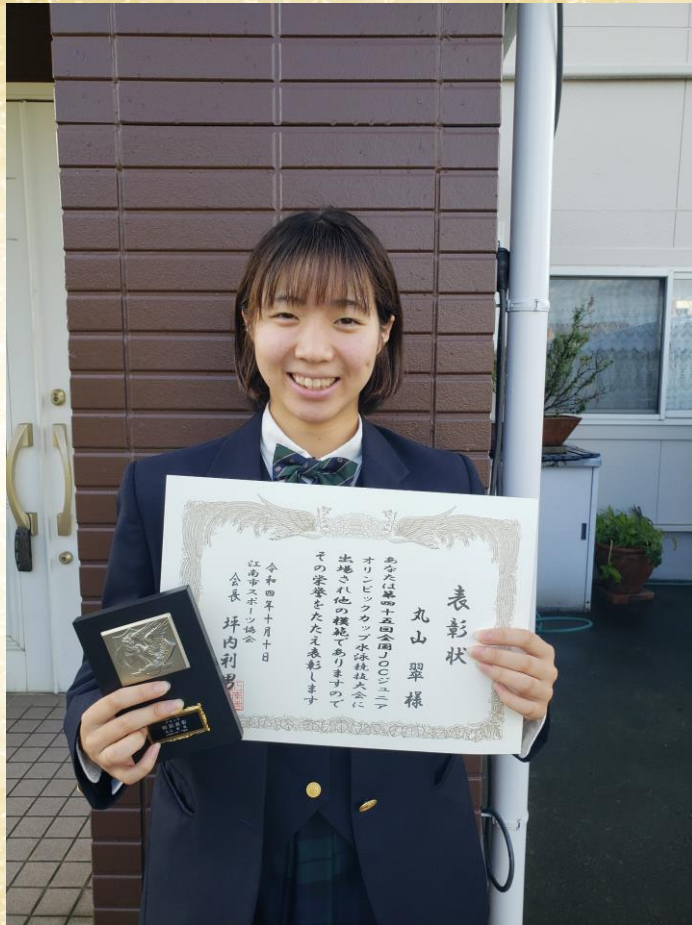 表彰状
丸山 翠 様
あなたは第四十五回全国JOCジュニア
オリンピックカップ水泳競技大会に
出場され他の模範でありますので
その栄誉をたたえ表彰します
令和四年十月十日
江南市スポーツ協会
会長 坪内利男